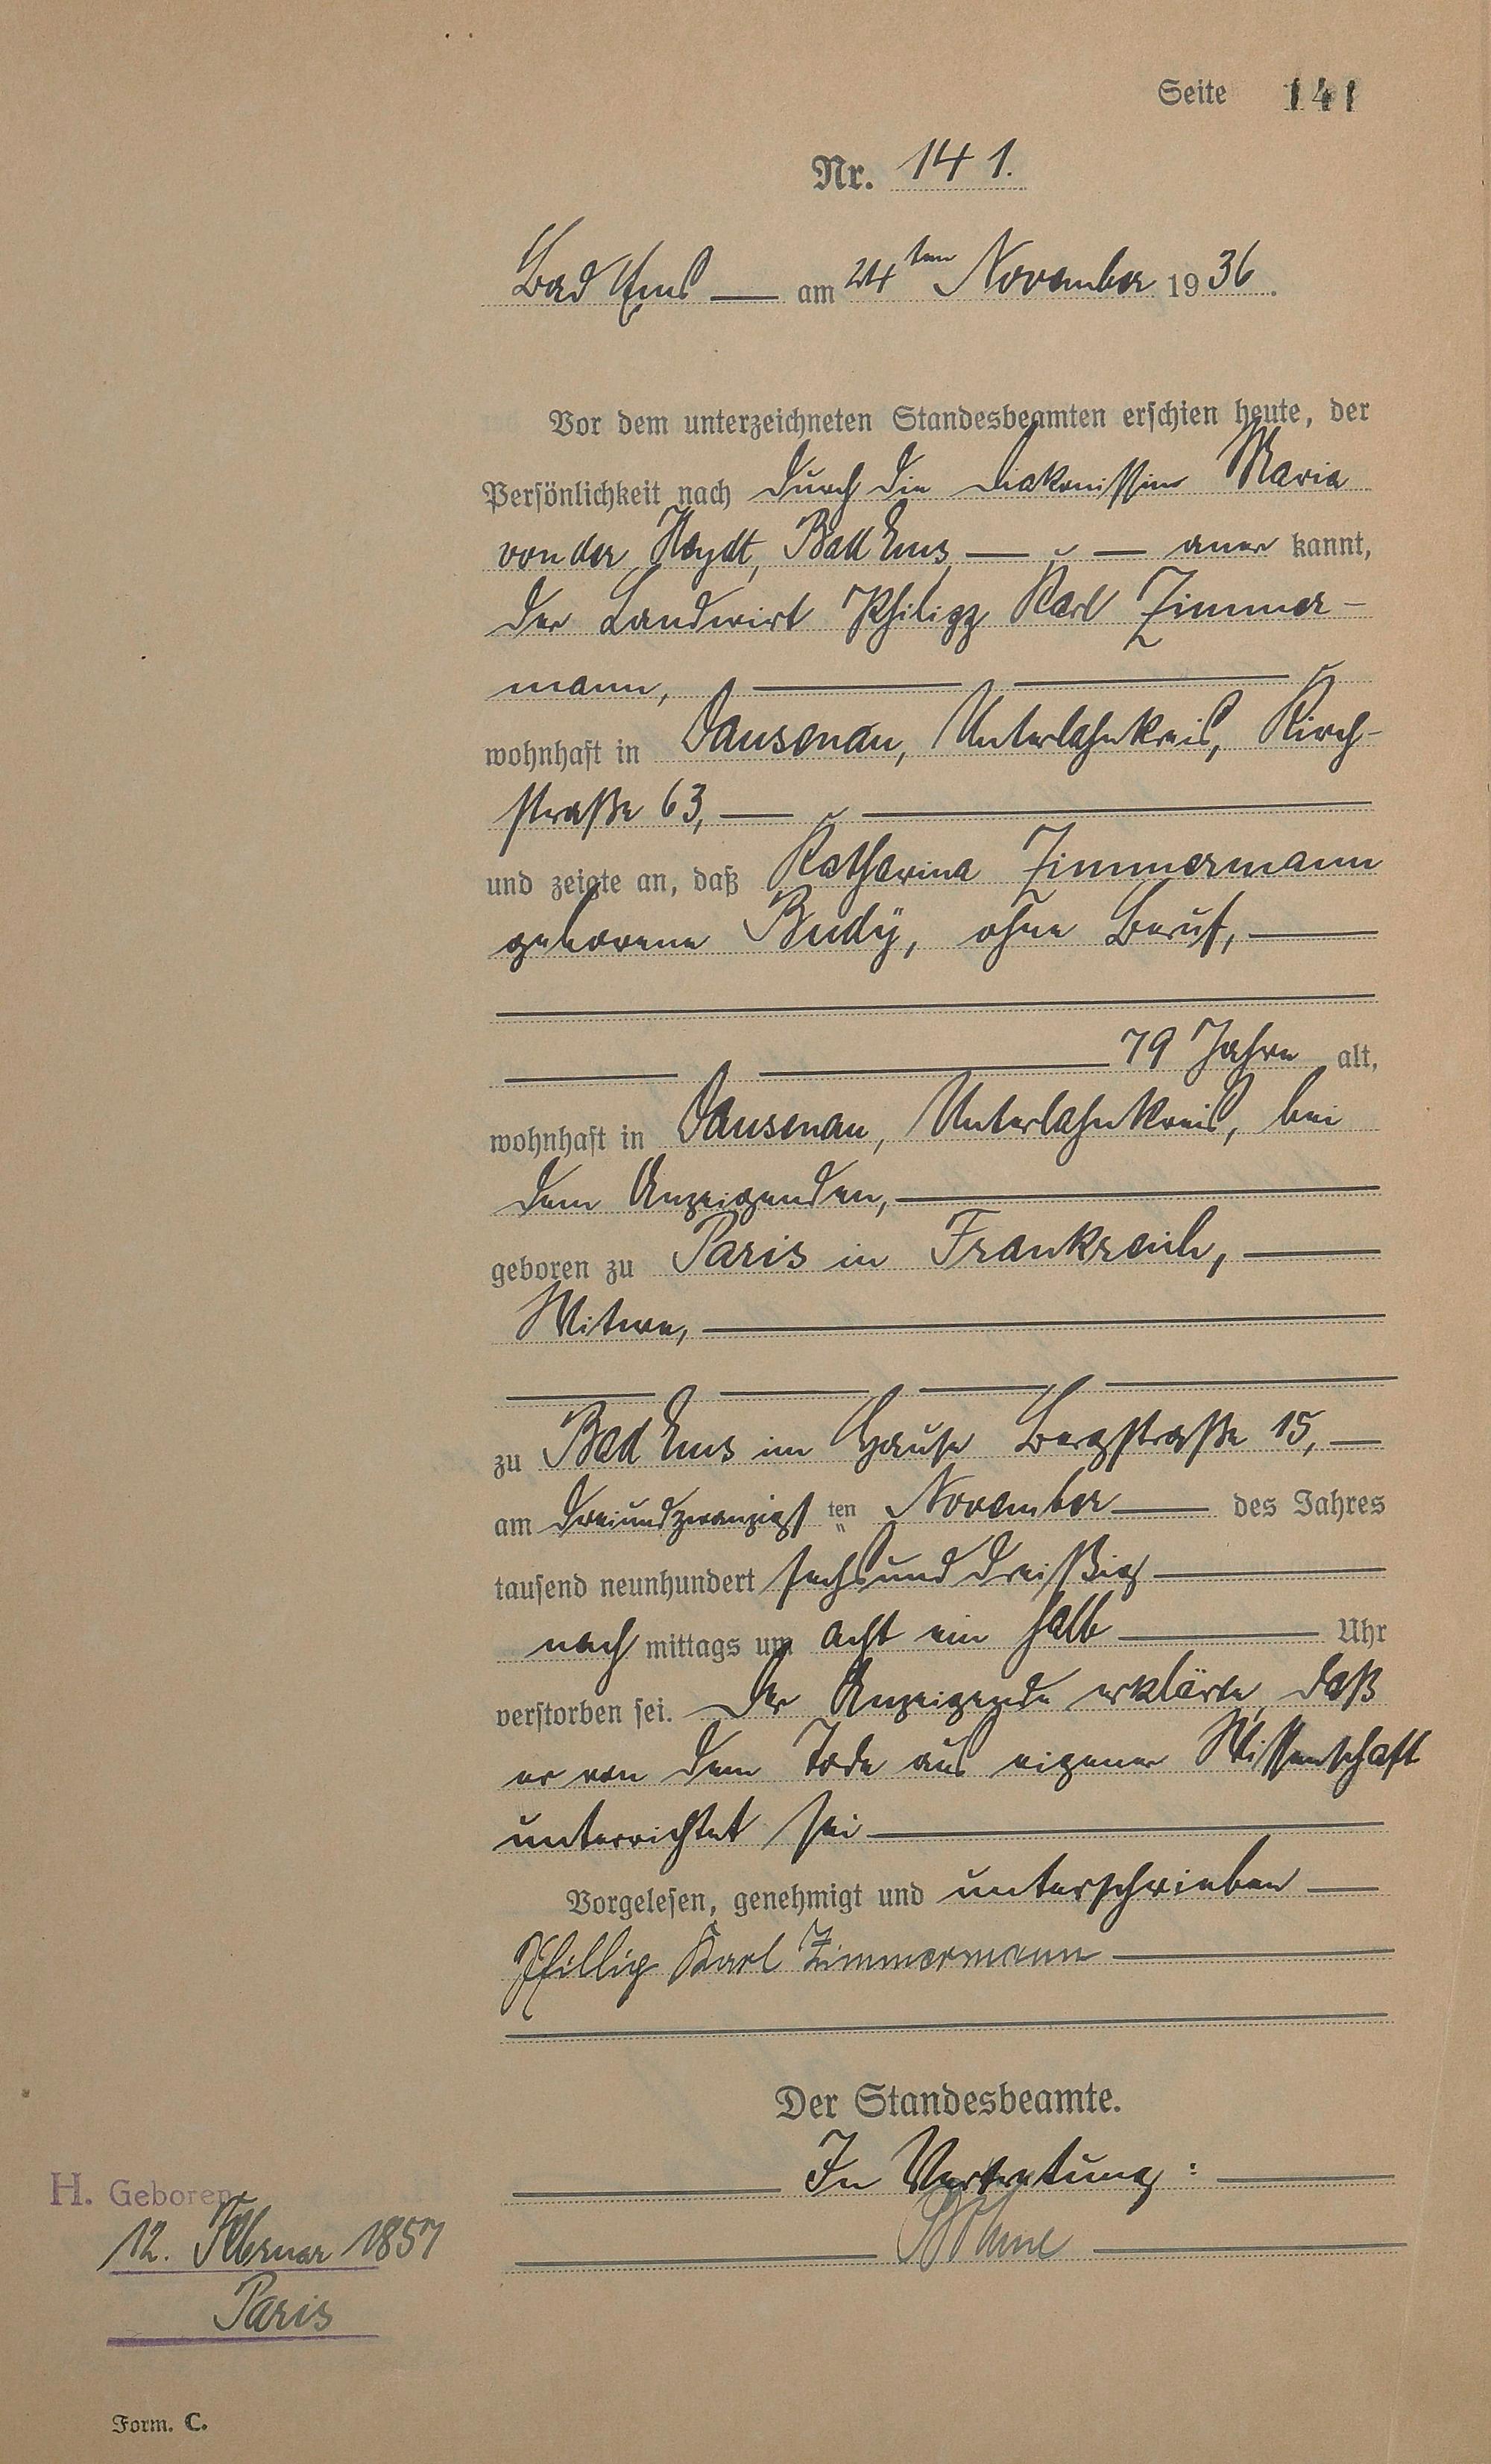 Seite 141
Nr. 141.
Bad Ems — am 24ten November 1936.
Vor dem unterzeichneten Standesbeamten erschien heute, der
Persönlichkeit nach durch die Diakonissin Maria
von der Heydt, Bad Ems, — — aner kannt,
der Landwirt Philipp Karl Zimmer-
mann,
wohnhaft in Dausenau, Unterlahnkreis, Kirch-
straße 63,
und zeigte an, daß Katharina Zimmermann
geborene Budÿ, ohne Beruf,
79 Jahre alt,
wohnhaft in Dausenau, Unterlahnkreis, bei
dem Anzeigenden,
geboren zu Paris in Frankreich,
Witwe,
zu Bad Ems im Hause Bergstraße 15,
am dreiundzwanzigsten November des Jahres
tausend neunhundert sechsunddreißig
nach mittags um acht ein halb Uhr
verstorben sei. Der Anzeigende erklärte, daß
er von dem Tode aus eigener Wissenschaft
unterrichtet sei
Vorgelesen, genehmigt und unterschrieben
Phillip Karl Zimmermann
Der Standesbeamte.
In Vertretung:
H. Geboren
12. Februar 1857
Paris
Form. C.